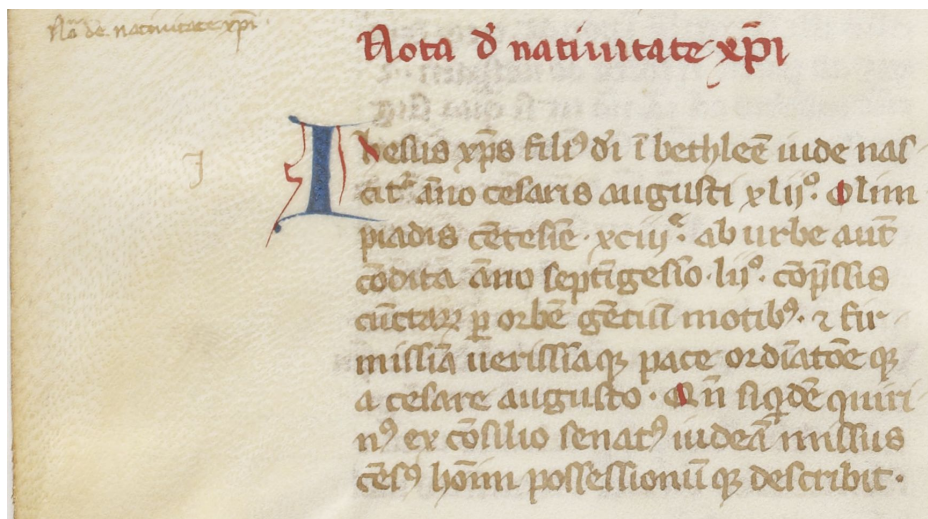 No de natiuitate xp̄i
Nota d̄ natiuitate xp̄i
J
Ihesus xp̄s filiꝰ dī ī bethleē iude nas
cit᷑ āno cesaris augusti xlijº. Olim
piadis cētesiē · xciijᵉ. ab urbe aut̄
cōdita āno septīgesīo · lijº. cōp̄ssis
cūctaꝝ ꝑ orbē gētiū motibꝫ. ⁊ fir
missīa uerissīaqꝫ pace ordīatōe qꝫ
a cesare augusto · Qn̄ siqͥdē quiri
nꝰ ex cōsilio senatꝰ iudeā missus
cēsꝰ hōīm possessionūqꝫ describit ·